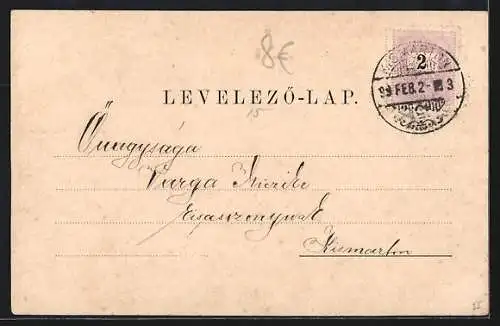 8€
2
KISMARTON
99 FEB. 2 3
LEVELEZŐ-LAP.
15
Őnagysága
Varga
Kisasszonynak
Kismarton
15